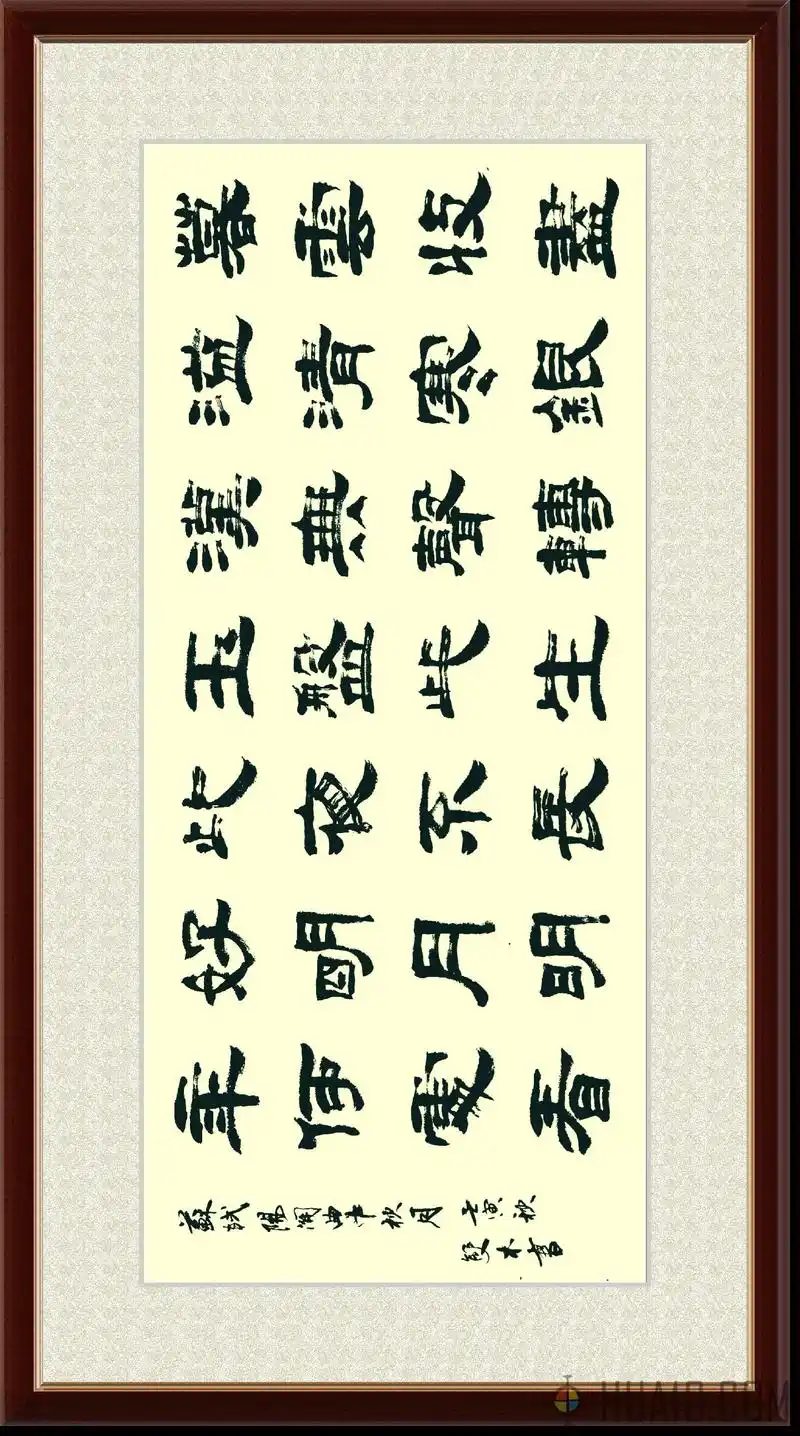 暮雲收盡
溢清寒銀
漢無聲轉
玉盤此生
此夜不長
好明月明
年何處看
蘇軾陽關曲中秋月 壬寅秋
段木書